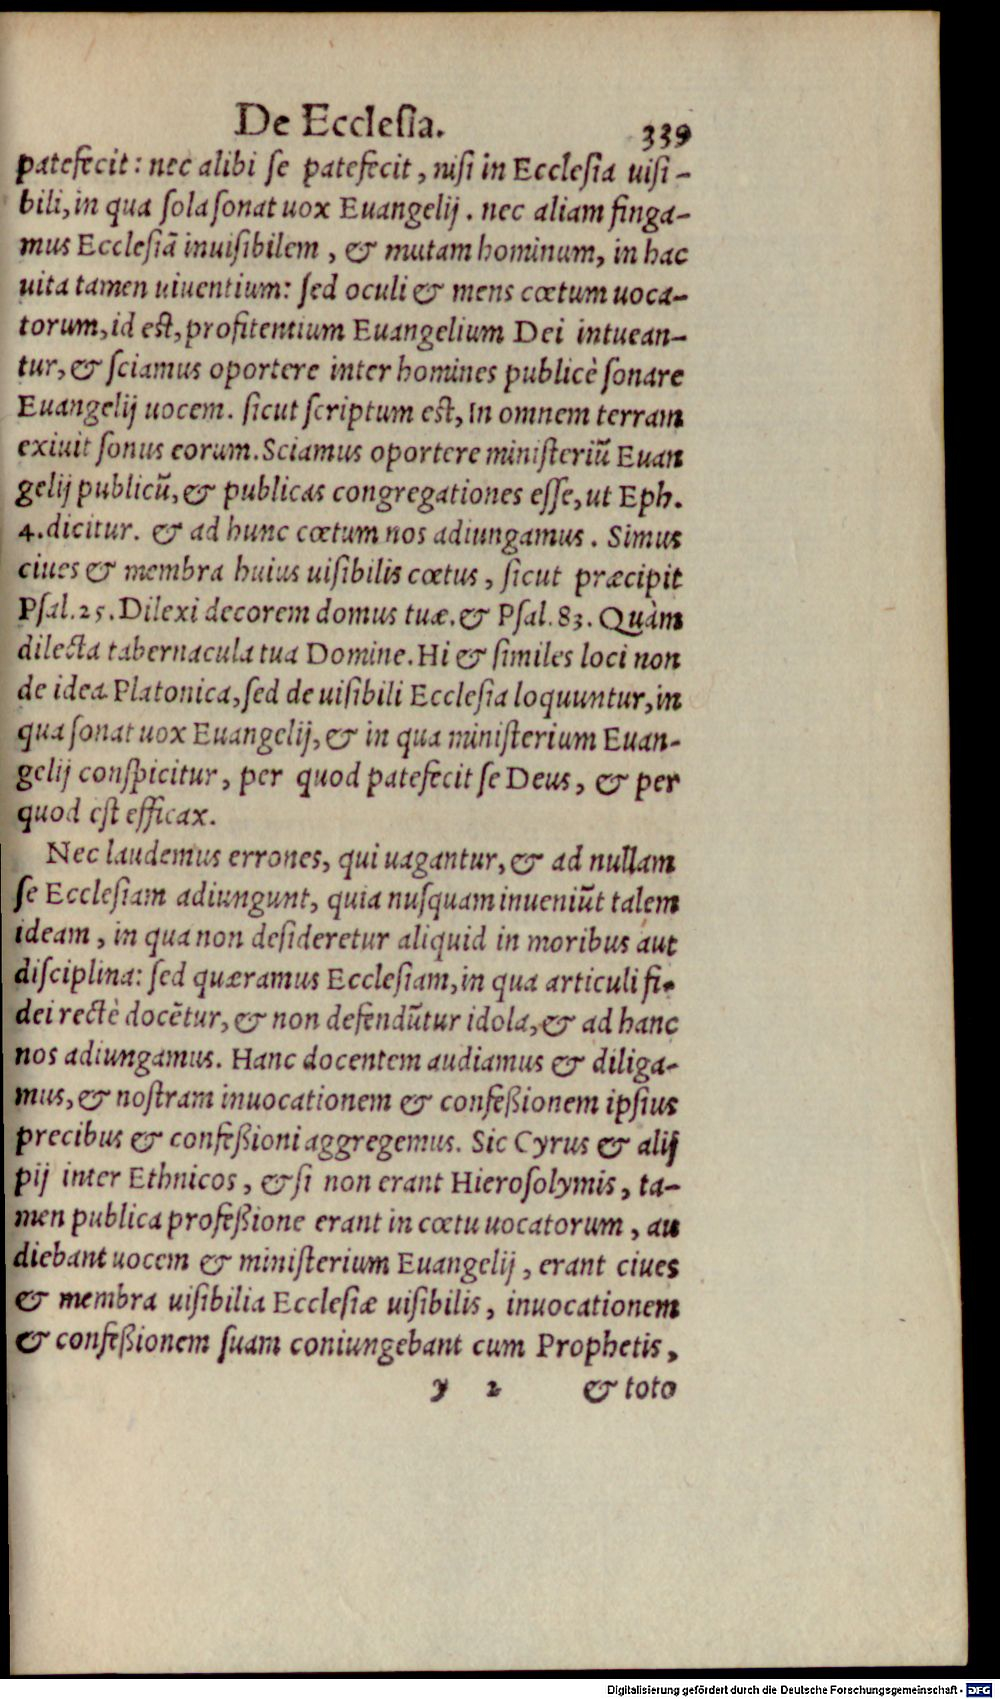 De Ecclesia. 339
patefecit: nec alibi se patefecit, nisi in Ecclesia uisi-
bili, in qua sola sonat uox Euangelij. nec aliam finga-
mus Ecclesiā inuisibilem, & mutam hominum, in hac
uita tamen uiuentium: sed oculi & mens cœtum uoca-
torum, id est, profitentium Euangelium Dei intuean-
tur, & sciamus oportere inter homines publicè sonare
Euangelij uocem. sicut scriptum est, In omnem terram
exiuit sonus eorum. Sciamus oportere ministeriū Euan
gelij publicū, & publicas congregationes esse, ut Eph.
4. dicitur. & ad hunc cœtum nos adiungamus. Simus
ciues & membra huius uisibilis cœtus, sicut præcipit
Psal. 25. Dilexi decorem domus tuæ. & Psal. 83. Quàm
dilecta tabernacula tua Domine. Hi & similes loci non
de idea Platonica, sed de uisibili Ecclesia loquuntur, in
qua sonat uox Euangelij, & in qua ministerium Euan-
gelij conspicitur, per quod patefecit se Deus, & per
quod est efficax.
Nec laudemus errones, qui uagantur, & ad nullam
se Ecclesiam adiungunt, quia nusquam inueniūt talem
ideam, in qua non desideretur aliquid in moribus aut
disciplina: sed quæramus Ecclesiam, in qua articuli fi-
dei rectè docētur, & non defendūtur idola, & ad hanc
nos adiungamus. Hanc docentem audiamus & diliga-
mus, & nostram inuocationem & confeßionem ipsius
precibus & confeßioni aggregemus. Sic Cyrus & alij
pij inter Ethnicos, & si non erant Hierosolymis, ta-
men publica profeßione erant in cœtu uocatorum, au
diebant uocem & ministerium Euangelij, erant ciues
& membra uisibilia Ecclesiæ uisibilis, inuocationem
& confeßionem suam coniungebant cum Prophetis,
y 2 & toto
Digitalisierung gefördert durch die Deutsche Forschungsgemeinschaft - DFG